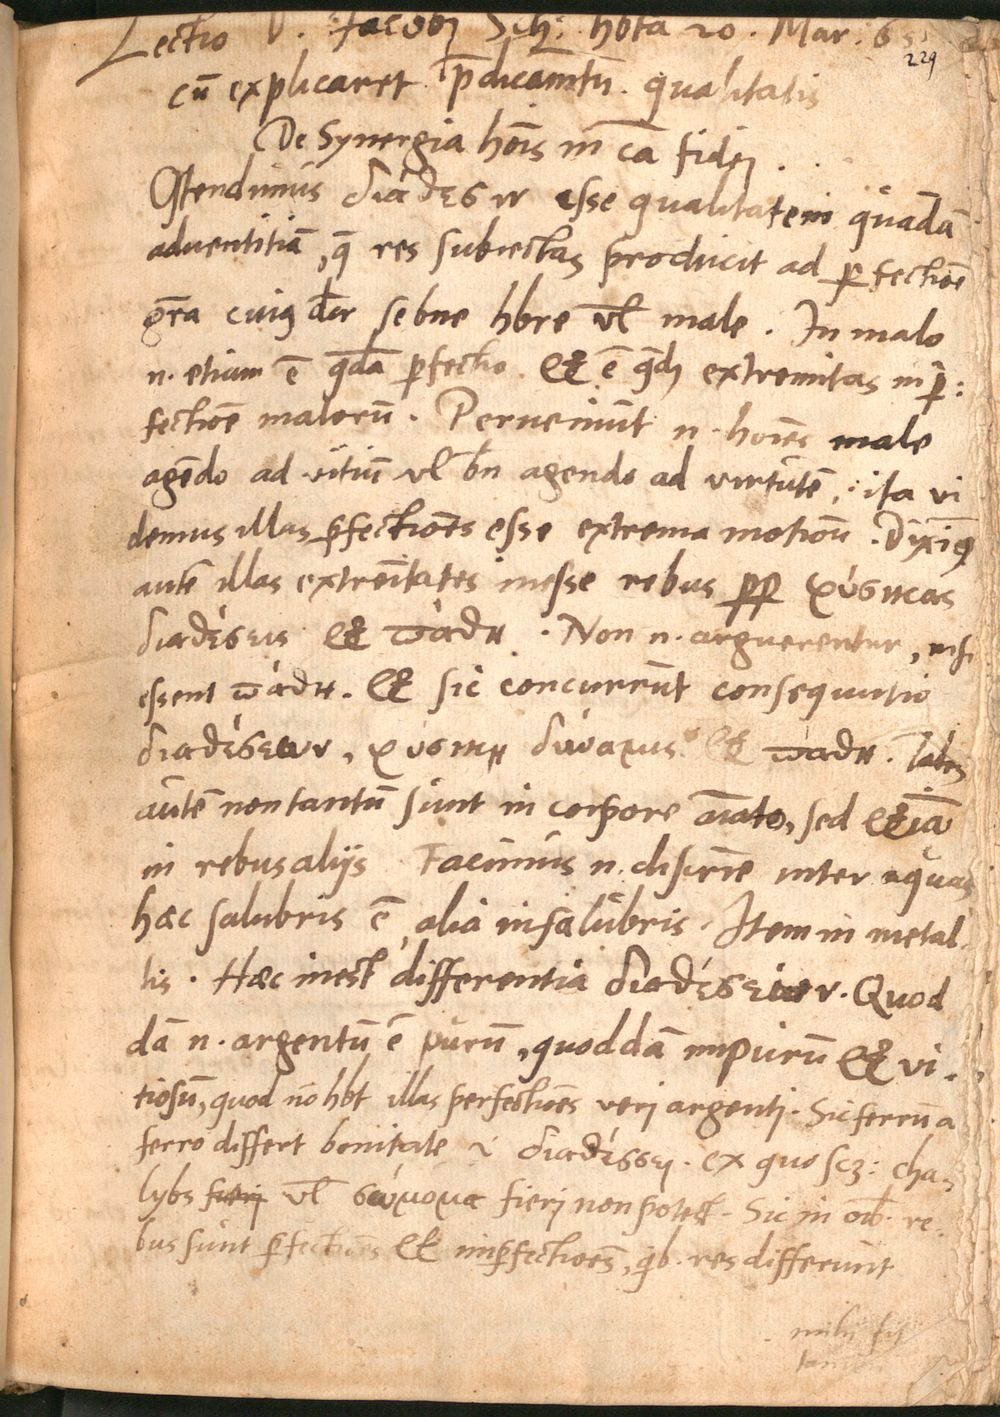 Lectio D. Jacobi Sch: hbta 20. Mar: 65
229
cū explicaret p̄dicamtū. qualitatis
De Synergia hōis in cā fidej.
Ostendimus διάθεσιν esse qualitatem quādā
adventitiā, q̄ res subiectas producit ad ꝑfectiōē
gr̄a cuiꝰ dr̄ se bn̄e hb̄re vl̄ male. In malo
n. etiam ē q̄dā ꝑfectio & ē q̄dā extremitas in ꝑ:
fectiōē malorū. Perveniūt n. hoīes male
agēdo ad vitiū vl̄ bn̄ agendo ad virtutē, ita vi
demus illas ꝑfectiōēs esse extrema motionū. Diximꝰ
autē illas extrēitates inesse rebus ꝓꝑ φύσικας
διαθέσεις & πάθη. Non n. arguerentur, nisi
essent πάθη. & sic concurrūt consequutio
διαθέσεων, φύσικη δύναμις & πάθη. Tales
autē non tantū sunt in corpore aīato, sed &iā
in rebus alijs Facimus n. discrīē inter aquas
haec salubris ē, alia insalubris. Item in metal.
lis. Haec inest differentia διαθέσεων. Quod
dā n. argentū ē purū, quoddā impurū & vi.
tiosū, quod nō hbt illas perfectiōēs veri argenti. Sic ferrū a
ferro differt bonitate διαθέσει. ex quo scꝫ: cha
lybs fieri vl̄ fieri non potest. Sic in oīb. re.
bus sunt ꝑfectiōēs & imꝑfectiōēs, qb. res differunt